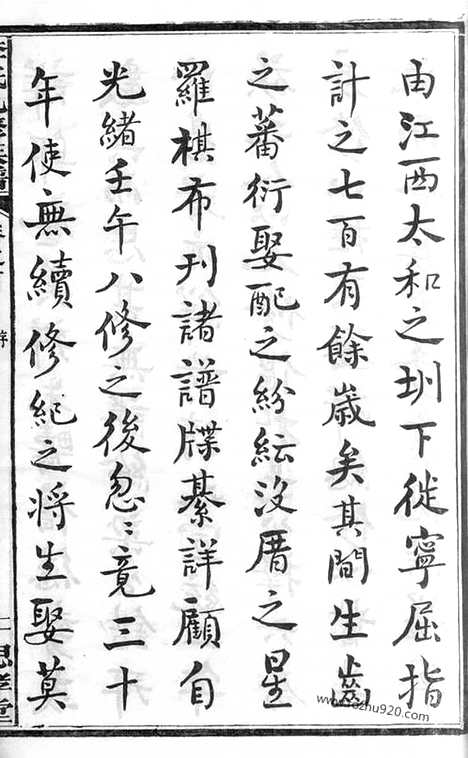 由江西太和之圳下徙寧屈指
計之七百有餘歲矣其間生齒
之蕃衍娶配之紛紜沒厝之星
羅棋布刊諸譜牒綦詳顧自
光緒壬午八修之後忽〻竟三十
年使無續修紀之將生娶莫
思孝堂
www.ozhu920.com